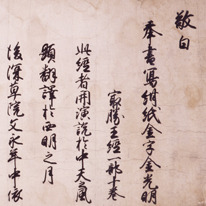 敬白
奉書寫紺紙金字金光明
最勝王經一部十卷
此經者開演説於中天風
顕翻譯於西明之月
後深草院文永年中依